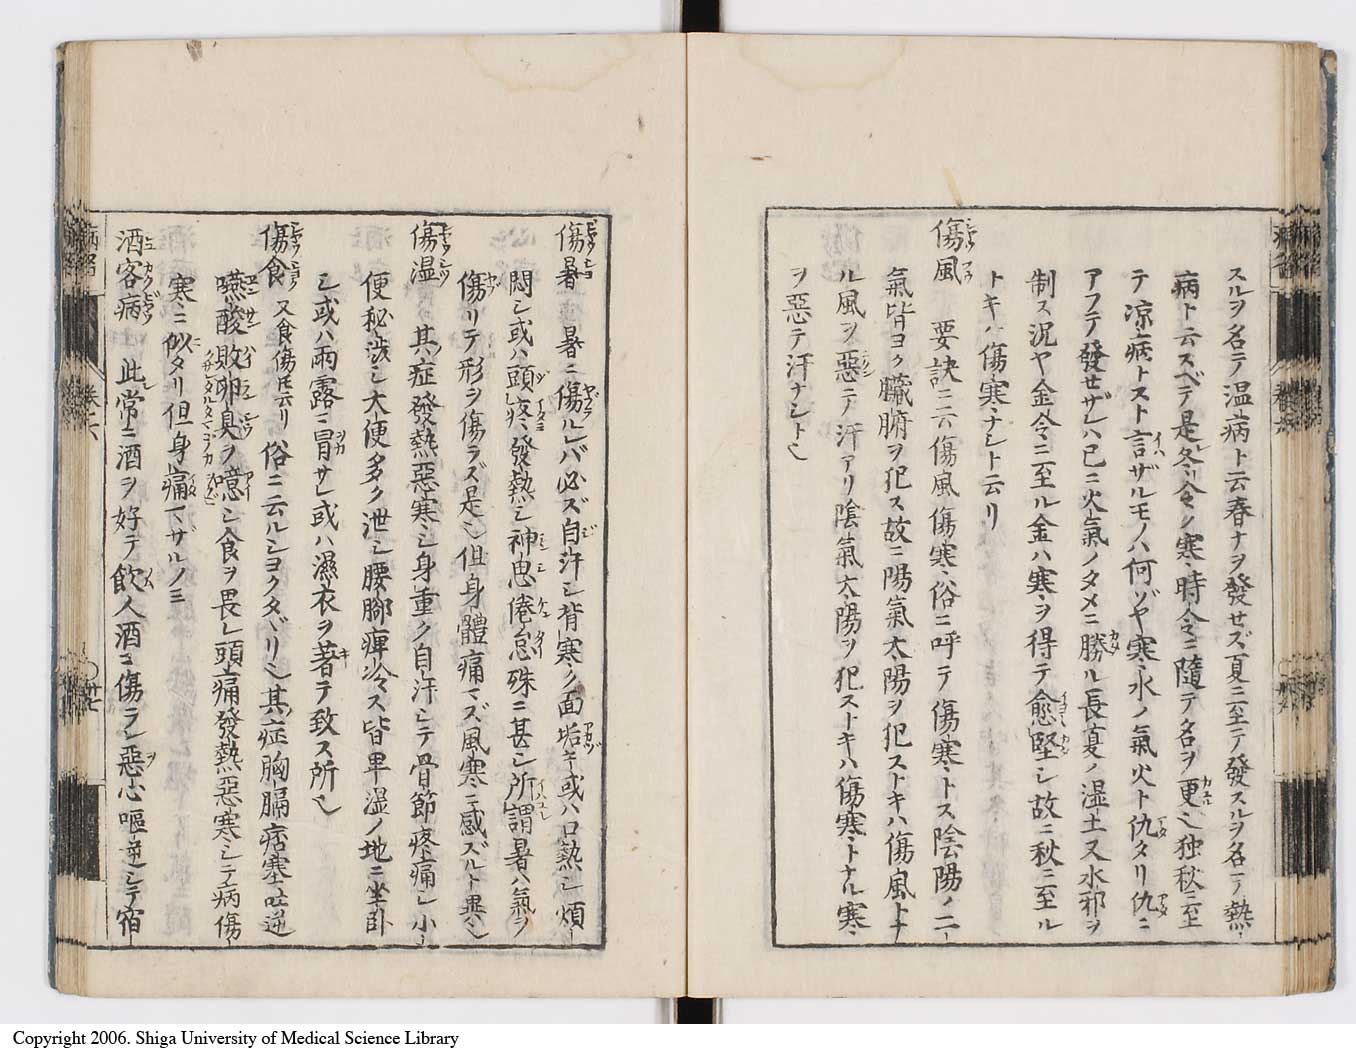 スルヲ名テ温病ト云春ナヲ發せズ夏ニ至テ發スルヲ名テ熱
病ト云スベテ是レ冬令ノ寒時令ニ隨テ名ヲ更ム独秋ニ至
テ涼病トスト言ザルモノハ何ゾヤ寒水ノ氣火ト仇タリ仇ニ
アフテ發せザレハ已ニ火氣ノタメニ勝ル長夏ノ湿土又水邪ヲ
制ス况ヤ金令ニ至ル金ハ寒ヲ得テ愈堅シ故ニ秋ニ至ル
トキハ傷寒ナシト云リ
傷風 要訣ニ云傷風傷寒俗ニ呼テ傷寒トス陰陽ノ二
氣皆ヨク臟腑ヲ犯ス故ニ陽氣太陽ヲ犯ストキハ傷風トナ
ル風ヲ惡テ汗アリ陰氣太陽ヲ犯ストキハ傷寒トナル寒
ヲ惡テ汗ナシト也
傷暑 暑ニ傷ルレバ必ズ自汗シ背寒ク面垢キ或ハ口熱シ煩
悶シ或ハ頭疼發熱シ神思倦怠殊ニ甚シ所謂暑ハ氣ヲ
傷リテ形ヲ傷ラズ是也但身體痛マズ風寒ニ感ズルト異也
傷湿 其症發熱惡寒シ身重ク自汗シテ骨節疼痛シ小
便秘渋シ大便多ク泄シ腰脚痺冷ス皆卑湿ノ地ニ坐臥
シ或ハ雨露ニ冒サレ或ハ濕衣ヲ著テ致ス所也
傷食 又食傷氏云リ 俗ニ云ルシヨクタヾリ也其症胸膈痞塞吐逆
嚥酸敗卵臭ヲ噫シ食ヲ畏レ頭痛發熱惡寒シテ病傷
寒ニ似タリ但身痛マザルノミ
酒客病 此常ニ酒ヲ好テ飲人酒ニ傷ラレ惡心嘔逆シテ宿
病名
卷之六
廿七
Copyright 2006. Shiga University of Medical Science Library